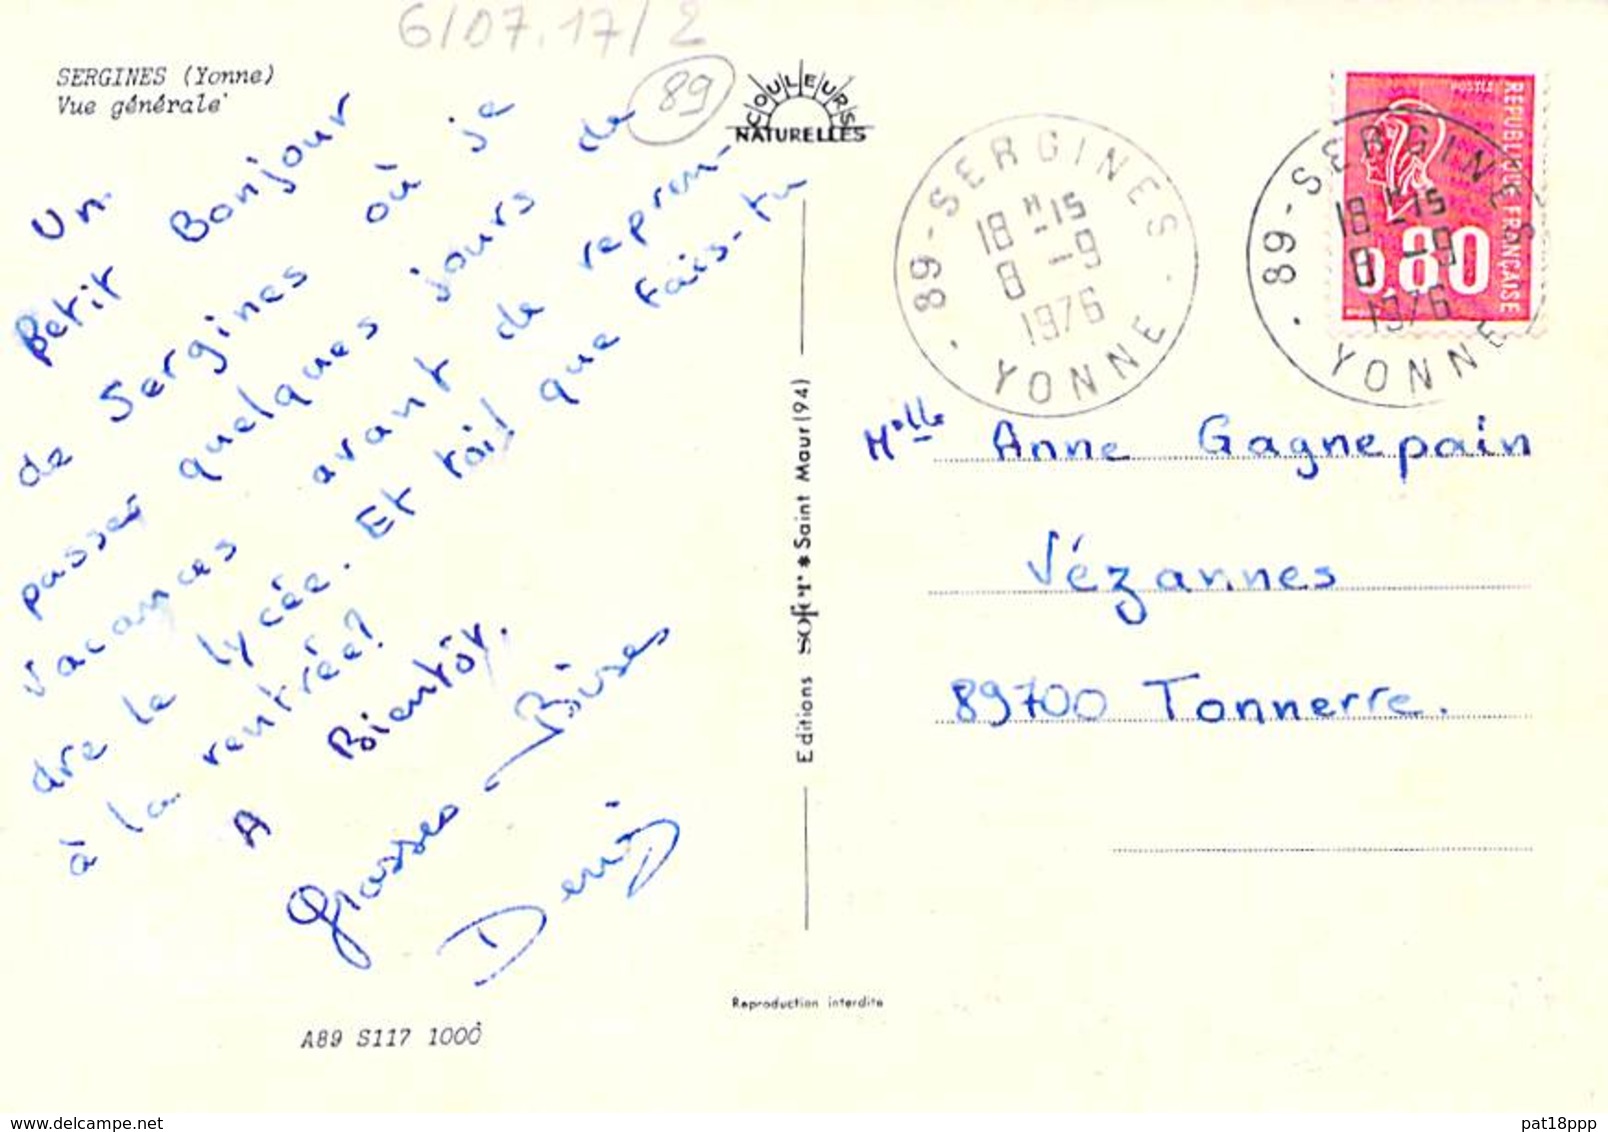 6/07.17/2
89
SERGINES (Yonne)
Vue générale
COULEURS
NATURELLES
Un
Petit Bonjour
de Sergines où je
passer quelques jours de
vacances avant de repren-
dre le lycée. Et toi! que fais-tu
à la rentrée?
A Bientôt.
Grosses Bises
Denis
A89 S117 1000
Editions SOFER * Saint Maur (94)
Reproduction interdite
89-SERGINES
18H-15
8-9
1976
YONNE
89-SERGINES
18H-15
8-9
1976
YONNE
POSTES
REPUBLIQUE FRANÇAISE
0,80
Melle Anne Gagnepain
Vézannes
89700 Tonnerre.
delcampe.net
pat18ppp